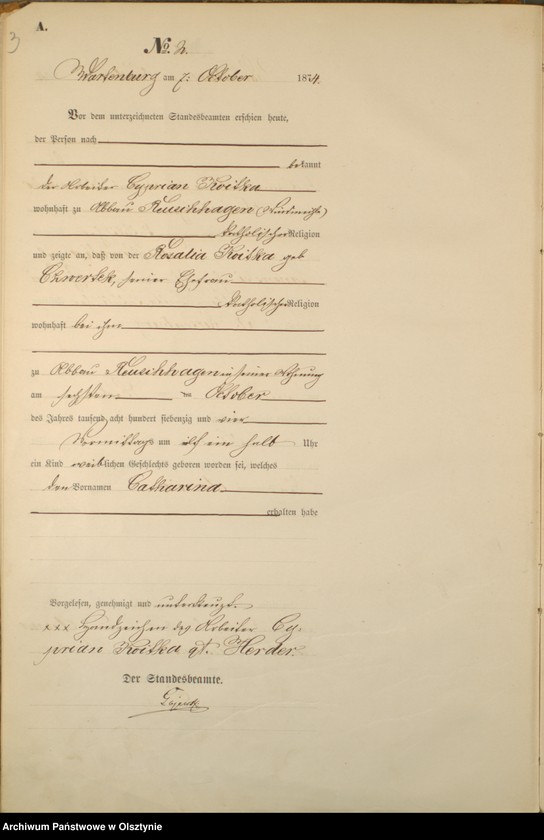 3
A.
No. 2.
Wartenburg am 7. October 1874.
Vor dem unterzeichneten Standesbeamten erschien heute,
der Person nach
bekannt
der Arbeiter Cyprian Koitka
wohnhaft zu Abbau Reuschhagen
katholischer Religion
und zeigte an, daß von der Rosalia Koitka geb
seiner Ehefrau
katholischer Religion
wohnhaft bei ihm
zu Abbau Reuschhagen in seiner Wohnung
am sechsten ten October
des Jahres tausend acht hundert siebenzig und vier
Vormittags um elf ein halb Uhr
ein Kind weiblichen Geschlechts geboren worden sei, welches
den Vornamen Catharina
erhalten habe
Vorgelesen, genehmigt und unterkreuzt.
xxx Handzeichen des Arbeiter Cy-
prian Koitka gt. Herder.
Der Standesbeamte.
Archiwum Państwowe w Olsztynie